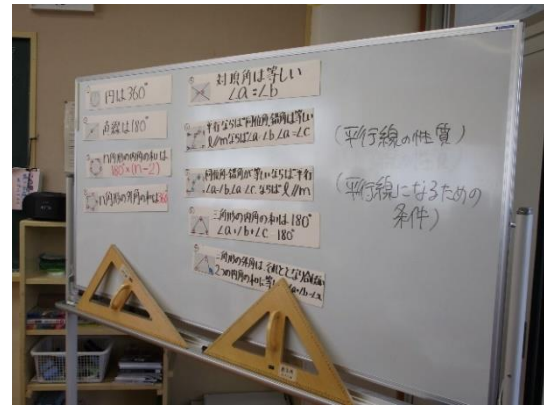 円は360°
直線は180°
n角形の内角の和は
180°×(n-2)
n角形の外角の和は360°
対頂角は等しい
∠a=∠b
平行ならば同位角、錯角は等しい
ℓ//mならば∠a=∠b ∠a=∠c
同位角・錯角が等しいならば平行
∠a=∠b、∠a=∠c ならば ℓ//m
三角形の内角の和は180°
∠a+∠b+∠c=180°
三角形の外角は、それととなり合わない
2つの内角の和に等しい
(平行線の性質)
(平行線になるための
条件)